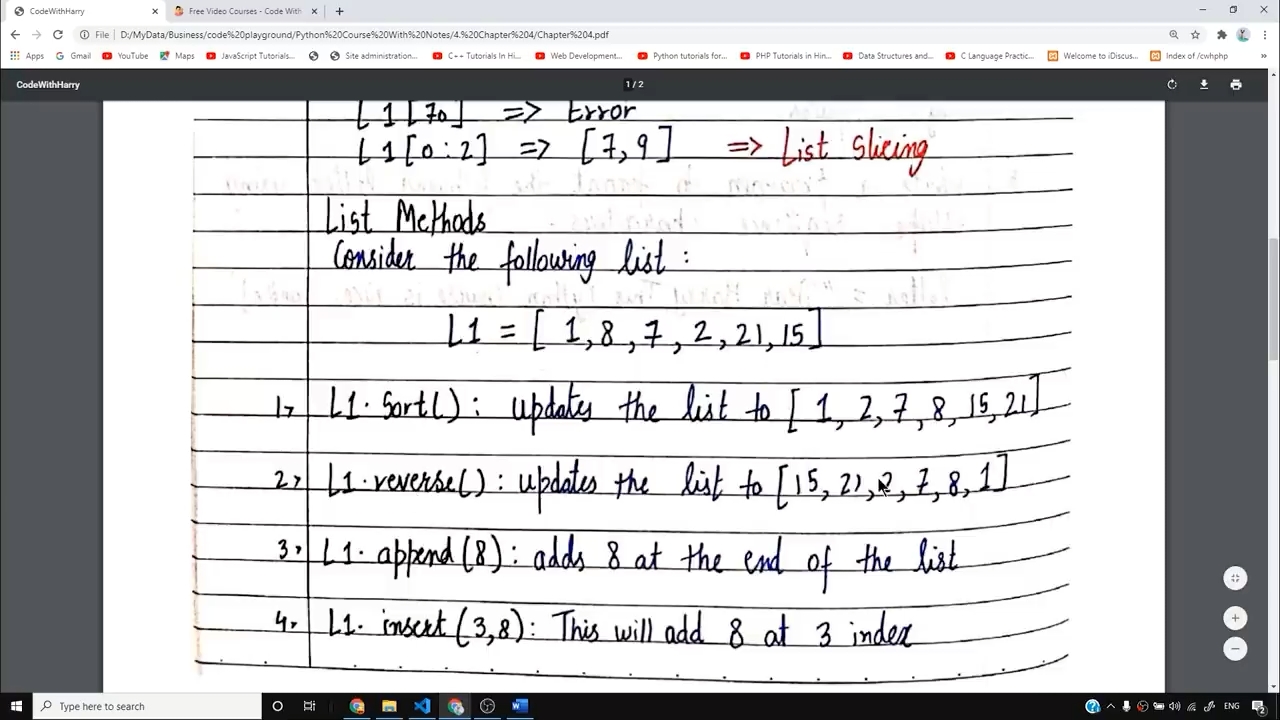 CodeWithHarry
Free Video Courses - Code With
File | D:/MyData/Business/code%20playground/Python%20Course%20With%20Notes/4.%20Chapter%204/Chapter%204.pdf
Apps
Gmail
YouTube
Maps
JavaScript Tutorials...
Site administration...
C++ Tutorials In Hi...
Web Development...
Python tutorials for...
PHP Tutorials in Hin...
Data Structures and...
C Language Practic...
Welcome to iDiscus...
Index of /cwhphp
CodeWithHarry
1 / 2
L1[70] => Error
L1[0:2] => [7,9] => List Slicing
List Methods
Consider the following list :
L1 = [ 1,8,7,2,21,15]
1> L1.Sort() : updates the list to [1,2,7,8,15,21]
2> L1.reverse() : updates the list to [15,21,2,7,8,1]
3> L1.append(8) : adds 8 at the end of the list
4> L1.insert(3,8) : This will add 8 at 3 index
Type here to search
ENG